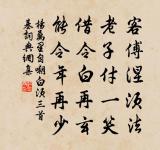 客傅涅須法
老子付一笑
借令白再玄
能令年再少
楊萬里自嘲白須三首
詞典網集